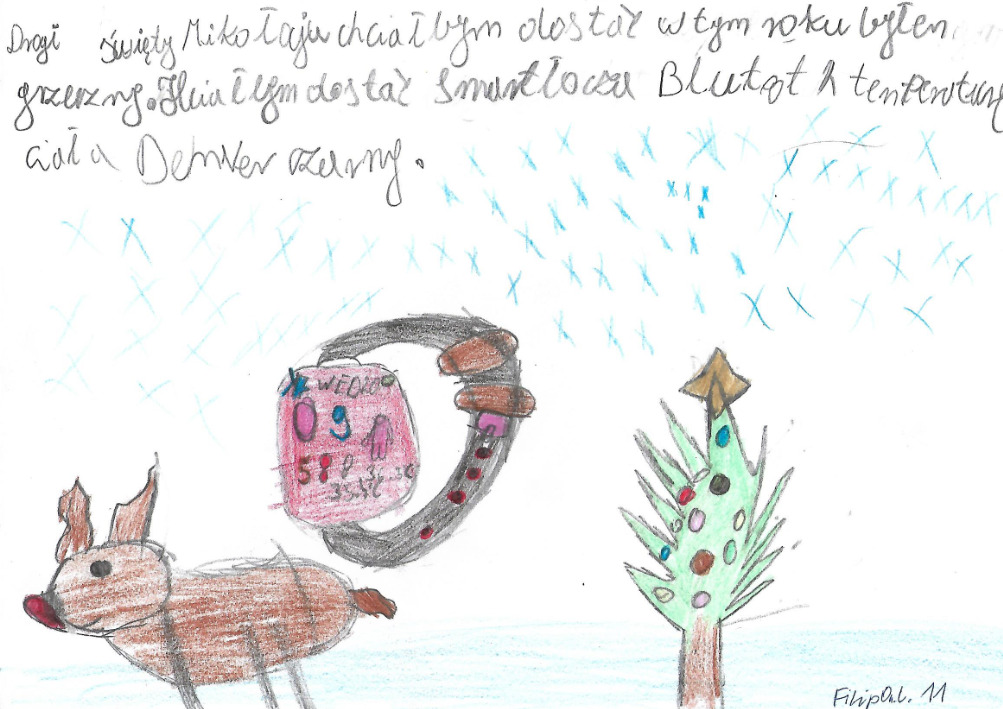 Drogi święty Mikołaju chciałbym dostać w tym roku byłem
grzeczny. Hciałbym dostać smartłocza Blutot h temperaturę
ciała Denver czarny.
09
58
35.5°C
Filip 11